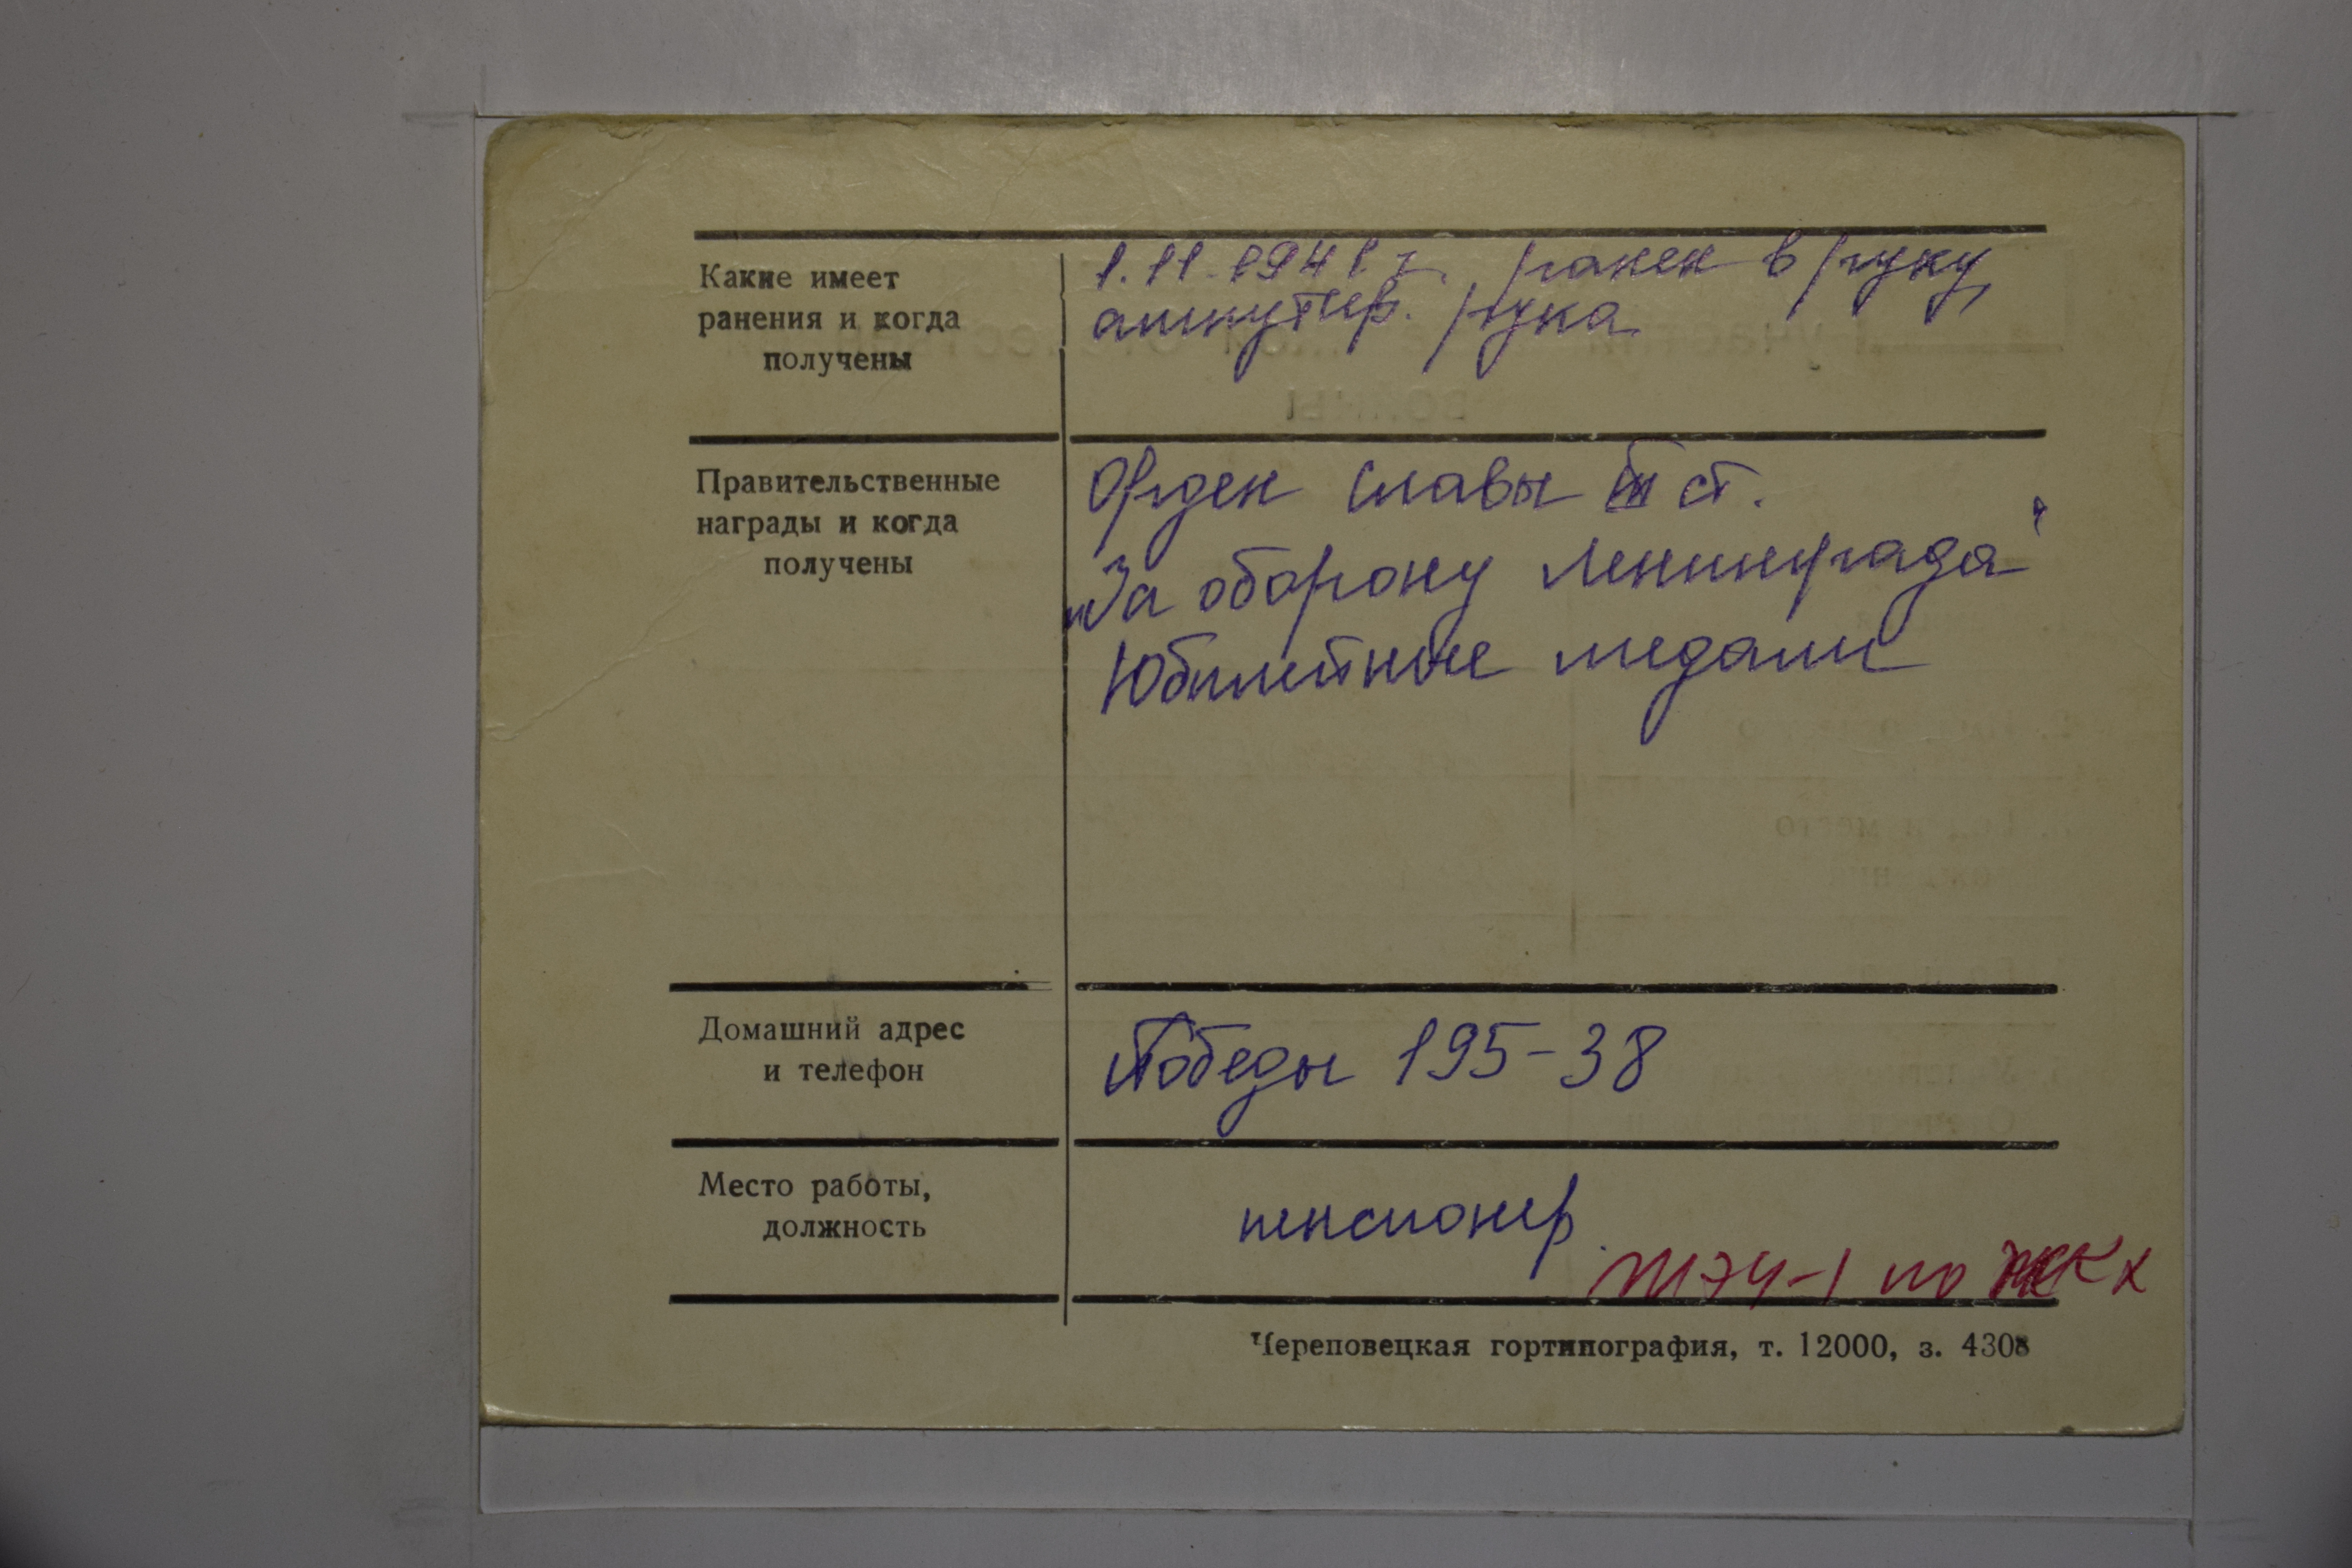 Какие имеет
ранения и когда
получены
1.11.1941 г. ранен в руку,
ампутир. рука
Правительственные
награды и когда
получены
Орден Славы III ст.
"За оборону Ленинграда"
Юбилейные медали
Домашний адрес
и телефон
Победы 195-38
Место работы,
должность
пенсионер.
по ЖКХ
Череповецкая гортипография, т. 12000, з. 4308